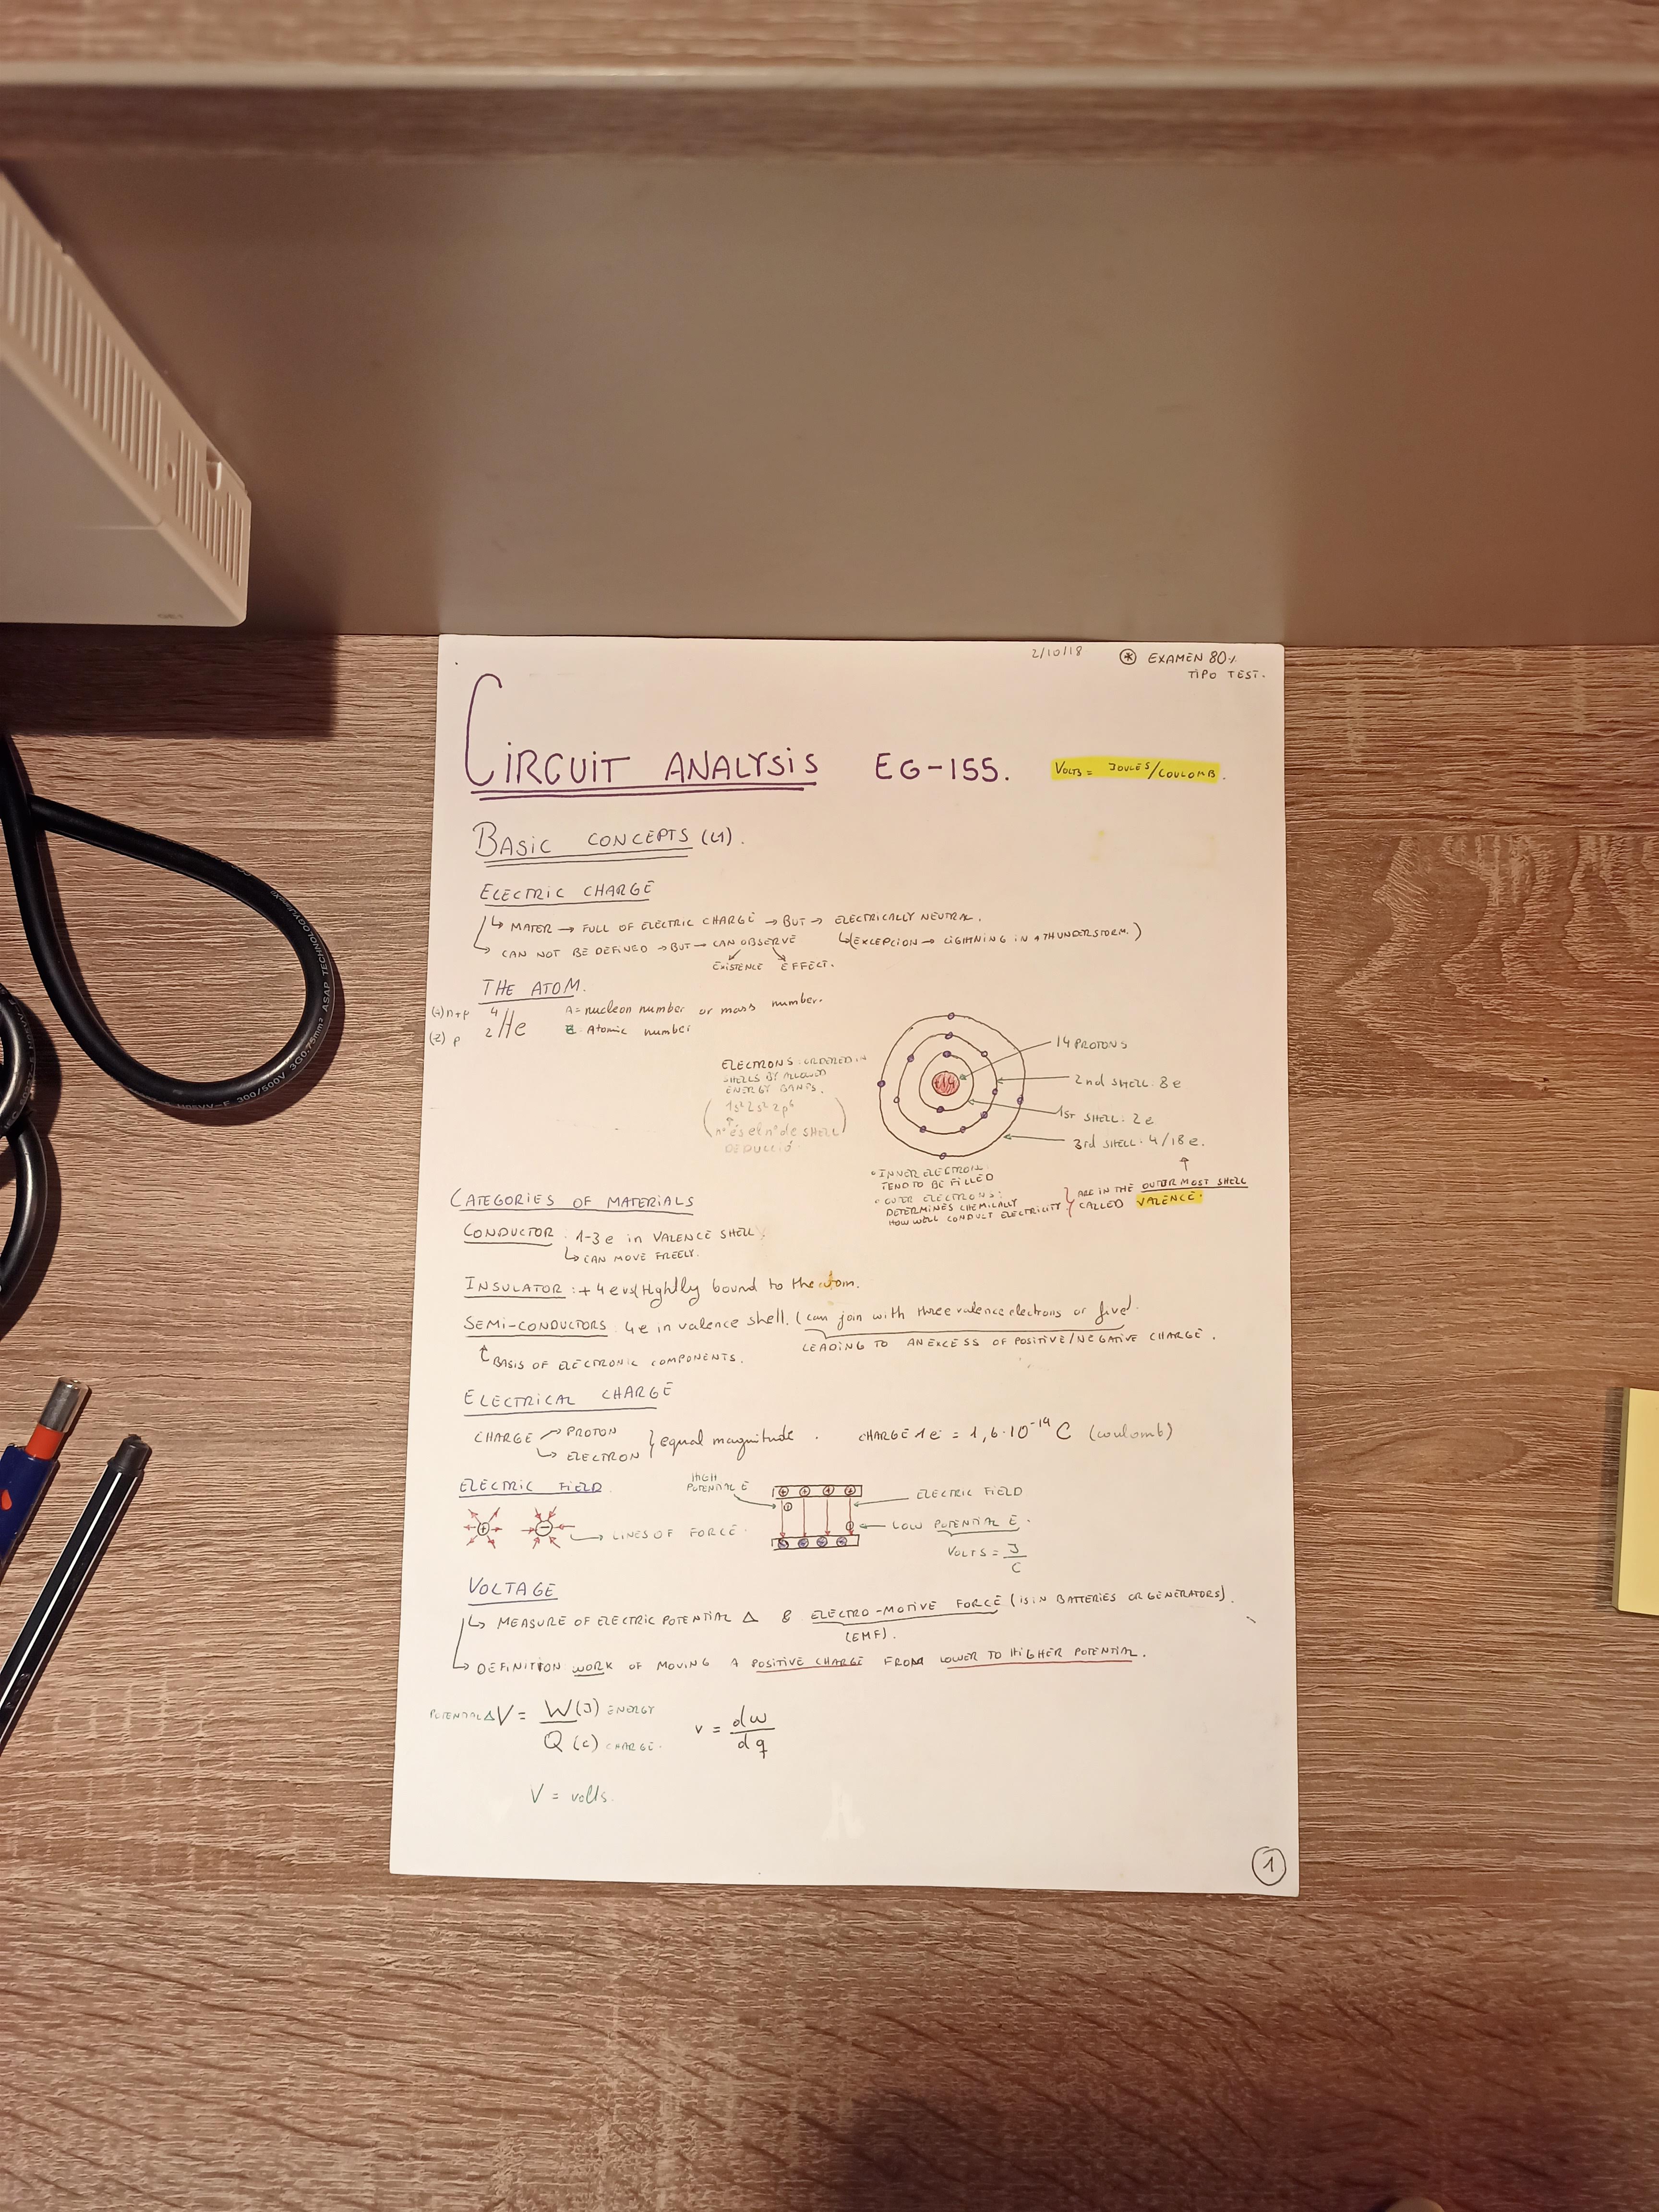 2/10/18
⊛ EXAMEN 80%
TIPO TEST.
CIRCUIT ANALYSIS EG-155.
VOLTS = JOULES/COULOMB.
BASIC CONCEPTS (L1).
ELECTRIC CHARGE
↳ MATER → FULL OF ELECTRIC CHARGE → BUT → ELECTRICALLY NEUTRAL.
↳ (EXCEPCION → LIGHTNING IN A THUNDERSTORM.)
↳ CAN NOT BE DEFINED → BUT → CAN OBSERVE
EXISTENCE EFFECT.
THE ATOM.
(A) n+p 4 He A = nucleon number or mass number.
(Z) p 2 Z Atomic number
ELECTRONS ORDERED IN
SHELLS BY ALLOWED
ENERGY BANDS.
(1s² 2s² 2p⁶
nº és el nº de SHELL)
DEDUCCIÓ
14
14 PROTONS
2nd SHELL: 8e
1st SHELL: 2e
3rd SHELL: 4/18 e.
• INNER ELECTRON:
TEND TO BE FILLED
• OUTER ELECTRONS:
DETERMINES CHEMICALLY
HOW WELL CONDUCT ELECTRICITY
} ARE IN THE OUTERMOST SHELL
CALLED VALENCE.
CATEGORIES OF MATERIALS
CONDUCTOR: 1-3 e in VALENCE SHELL.
↳ CAN MOVE FREELY.
INSULATOR: +4 e vs tightly bound to the atom.
SEMI-CONDUCTORS 4e in valence shell. (can join with three valence electrons or five).
LEADING TO AN EXCESS OF POSITIVE/NEGATIVE CHARGE.
↑ BASIS OF ELECTRONIC COMPONENTS.
ELECTRICAL CHARGE
CHARGE → PROTON
↳ ELECTRON } equal magnitude. CHARGE 1e = 1,6·10⁻¹⁹ C (coulomb)
ELECTRIC FIELD.
+ − → LINES OF FORCE.
HIGH
POTENTIAL E
ELECTRIC FIELD
LOW POTENTIAL E.
VOLTS = J/C
VOLTAGE
↳ MEASURE OF ELECTRIC POTENTIAL Δ & ELECTRO-MOTIVE FORCE (IS IN BATTERIES OR GENERATORS).
(EMF).
↳ DEFINITION WORK OF MOVING A POSITIVE CHARGE FROM LOWER TO HIGHER POTENTIAL.
POTENTIAL Δ V = W (J) ENERGY / Q (C) CHARGE. v = dw/dq
V = volts.
1
300/500V 3G0,75mm² ASAP TECHNOLOGY